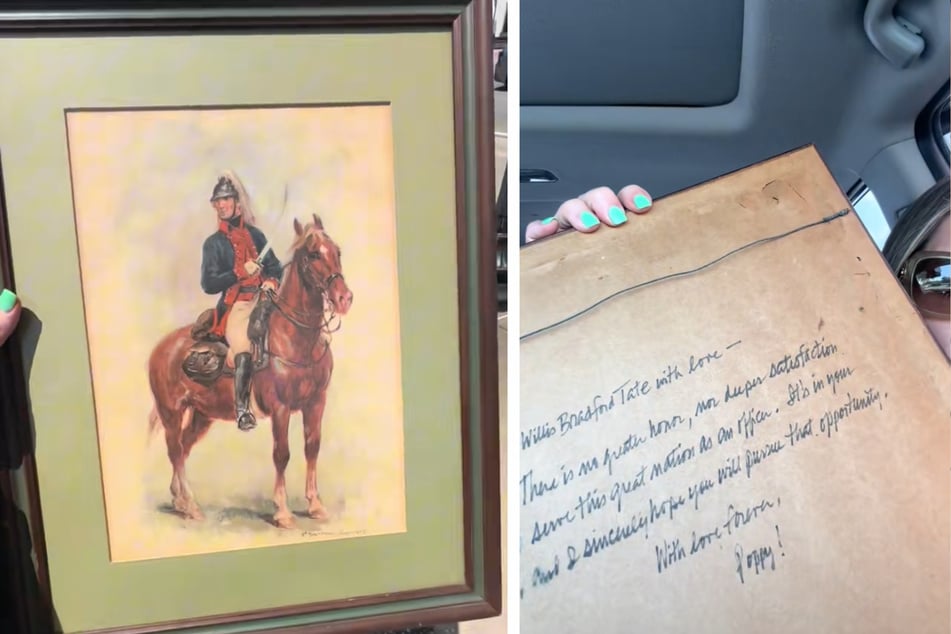 Willis Bradford Tate with love —
There is no greater honor, nor deeper satisfaction
serve this great nation as an officer. It's in your
and I sincerely hope you will pursue that opportunity.
With love forever,
Poppy!